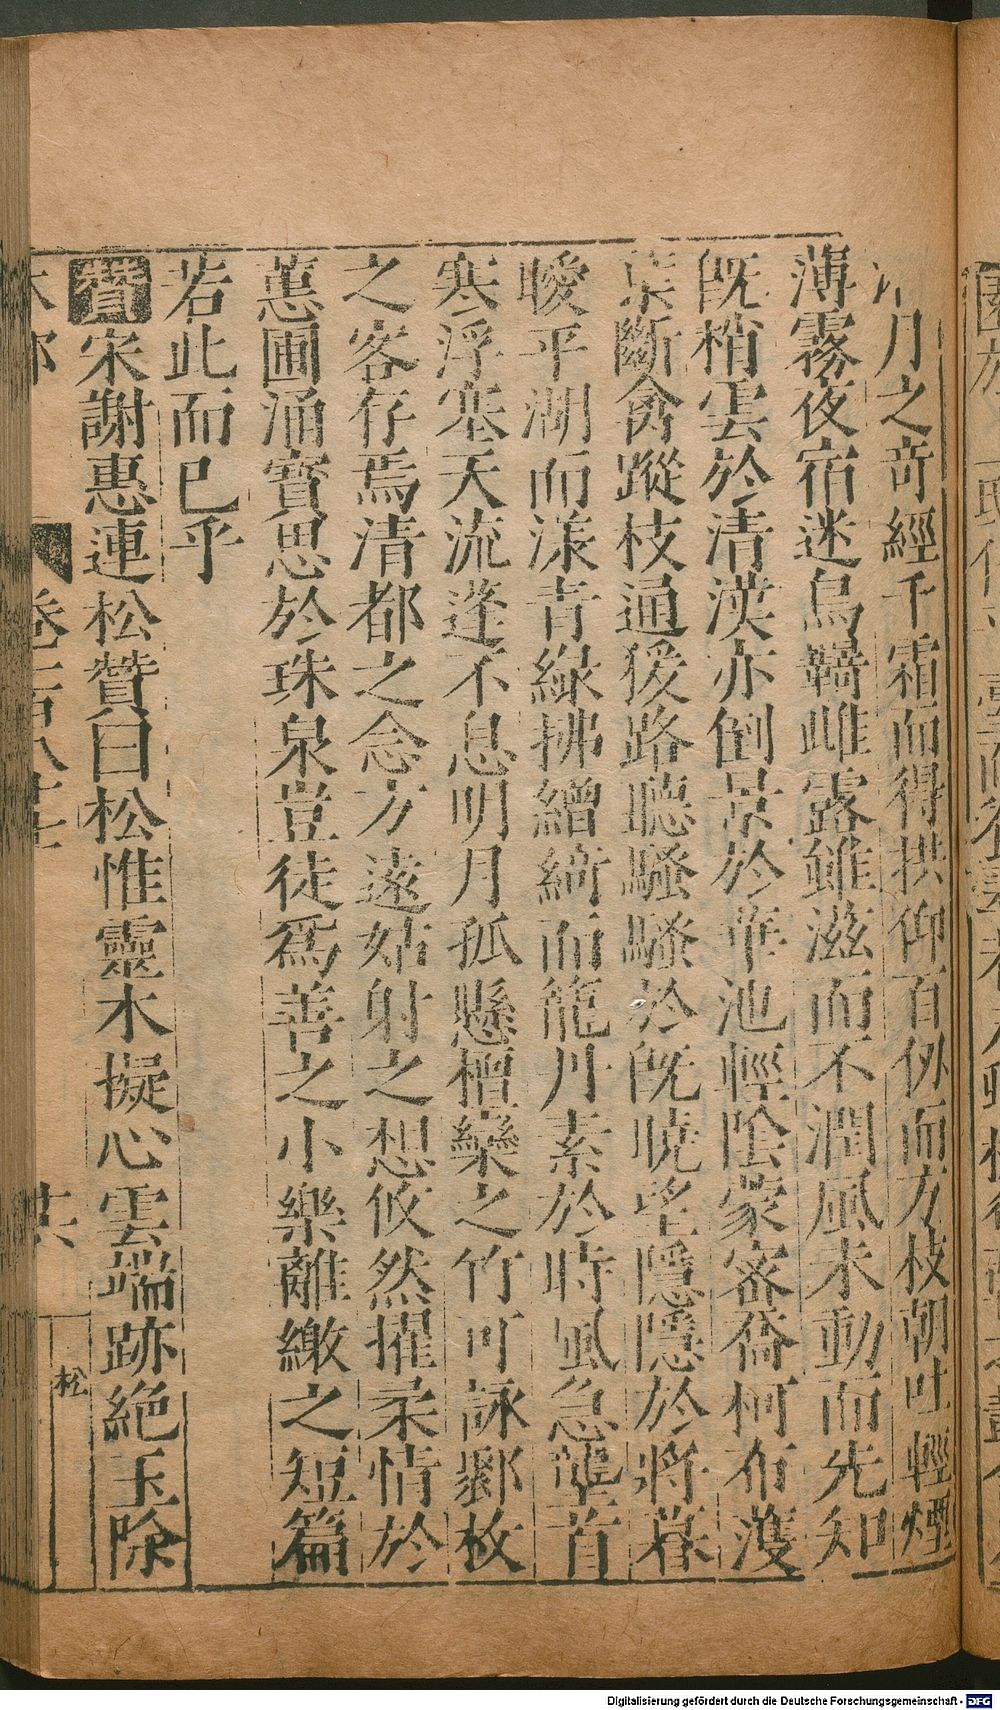 月之奇經千霜而得拱仰百仞而方枝朝吐輕煙
薄霧夜宿迷鳥羈雌露雖滋而不潤風未動而先知
既梢雲於清漢亦倒景於華池輕陰蒙密喬柯布濩
葉斷禽蹤枝通猨路聽騷騷於既曉望隱隱於將暮
曖平湖而漾青綠拂繒綺而籠丹素於時風急壟首
寒浮塞天流蓬不息明月孤懸檀欒之竹可詠鄒枚
之客存焉清都之念方遠姑射之想悠然擢柔情於
蕙圃涌寶思於珠泉豈徒爲善之小樂離繳之短篇
若此而已乎
贊宋謝惠連松贊曰松惟靈木擬心雲端跡絕玉除
松
Digitalisierung gefördert durch die Deutsche Forschungsgemeinschaft - DFG